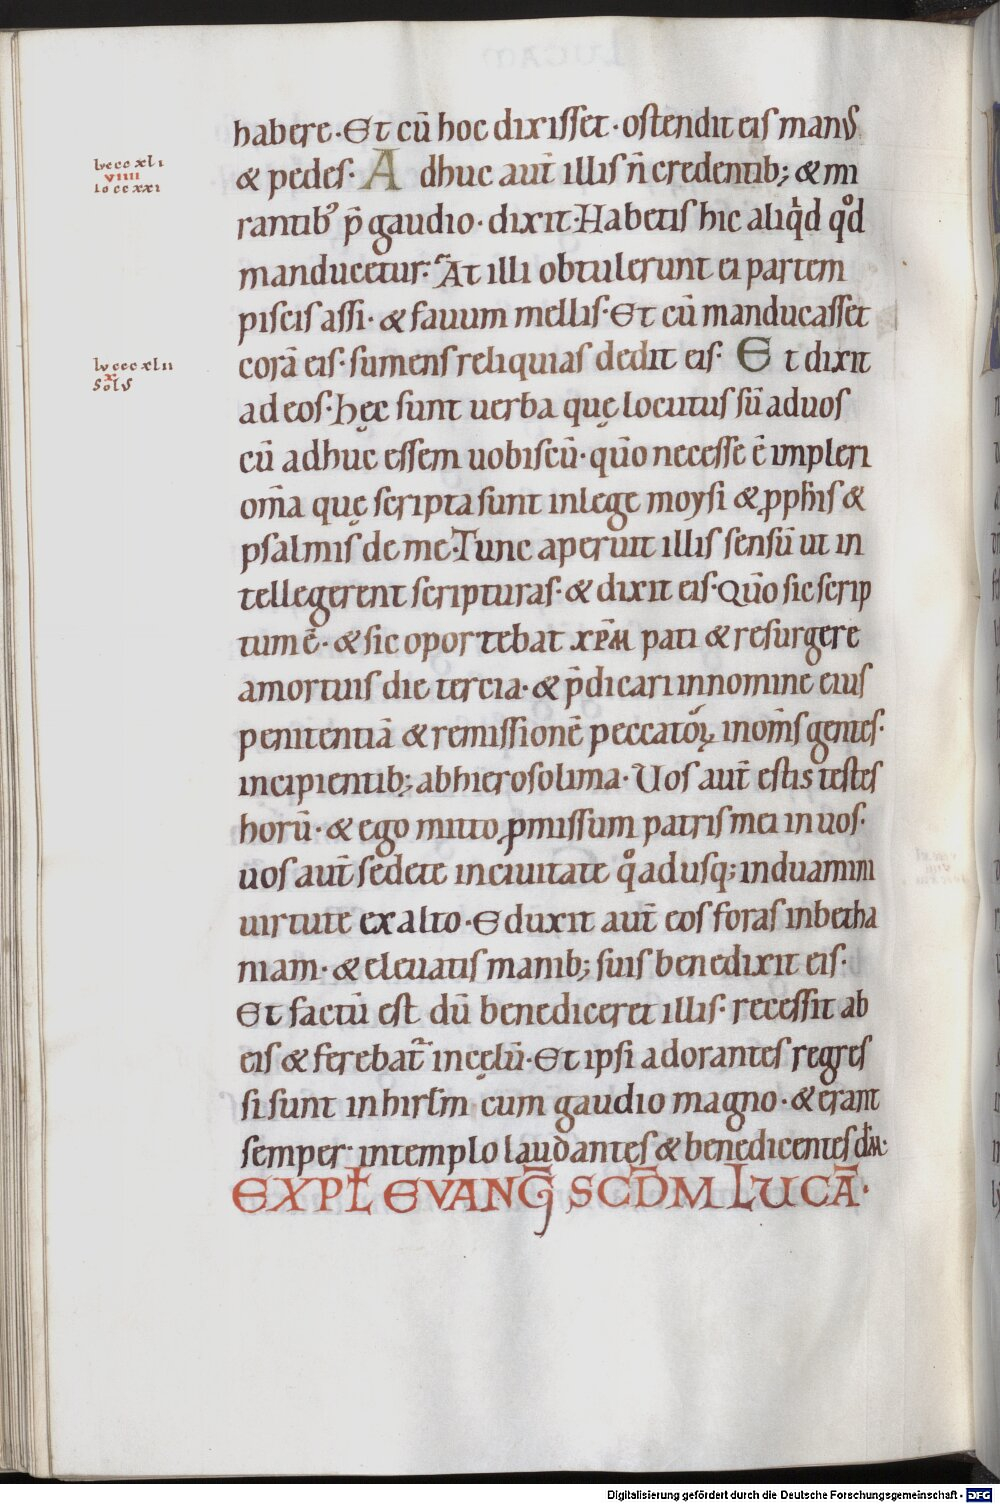 habere · Et cū hoc dixisset · ostendit eis manus
lv cccxli
viiii
io ccxxi
& pedes · Adhuc aut̄ illis n̄ credentib; & mi
rantib᾽ p̄ gaudio · dixit · Habetis hic aliqͥd qͦd
manducetur · At illi obtulerunt ei partem
piscis assi · & fauum mellis · Et cū manducasset
lv cccxlii
x
Solus
corā eis · sumens reliquias dedit eis · Et dixit
ad eos · hęc sunt uerba quę locutus sū ad uos
cū adhuc essem uobiscū · qūo necesse ē impleri
om̄a quę scripta sunt in lege moysi & ꝓph̄is &
psalmis de me · Tunc aperuit illis sensū ut in
tellegerent scripturas · & dixit eis · Qūo sic scrip
tum ē · & sic oportebat xp̄m pati & resurgere
a mortuis die tercia · & p̄dicari in nomine eius
penitentiā & remissionē peccatoꝝ in om̄s gentes ·
incipientib; ab hierosolima · Uos aut̄ estis testes
horū · & ego mitto ꝓmissum patris mei in uos ·
uos aut̄ sedete in ciuitate qͦadusq; induamini
uirtute ex alto · Eduxit aut̄ eos foras in betha
niam · & eleuatis manib; suis benedixit eis ·
Et factū est dū benediceret illis · recessit ab
eis & ferebat᷑ in cęlū · Et ipsi adorantes regres
si sunt in hirł̄m cum gaudio magno · & erant
semper in templo laudantes & benedicentes dm̄ ·
EXPŁ EVANḠ SCD̄M LUCĀ ·
Digitalisierung gefördert durch die Deutsche Forschungsgemeinschaft - DFG